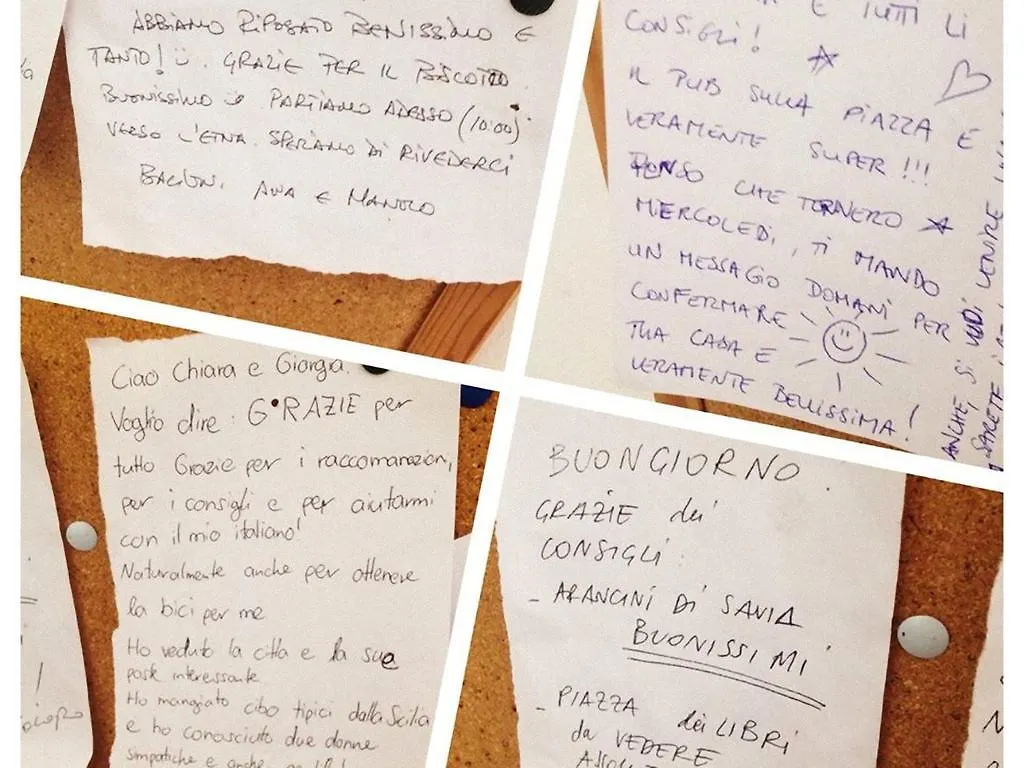 ABBIAMO RIPOSATO BENISSIMO E
TANTO! GRAZIE PER IL BISCOTTO
BUONISSIMO PARTIAMO ADESSO (10:00)
VERSO L'ETNA. SPERIAMO DI RIVEDERCI
BACIONI, ANA E MANOLO
E TUTTI LI
CONSIGLI!
IL PUB SULLA PIAZZA E
VERAMENTE SUPER!!!
PENSO CHE TORNERO
MIERCOLEDI, TI MANDO
UN MESSAGIO DOMANI PER
CONFERMARE
TUA CASA E
VERAMENTE BELLISSIMA!
ANCHE, SI VUOI VENIRE
SARETE
Ciao Chiara e Giorgia.
Voglio dire: GRAZIE per
tutto Grazie per i raccomanazioni,
per i consigli e per aiutarmi
con il mio italiano!
Naturalmente anche per ottenere
la bici per me
Ho veduto la citta e la sue
poste interessante
Ho mangiato cibo tipici dalla Sicilia
e ho conosciuto due donne
simpatiche e anche
BUONGIORNO.
GRAZIE dei
CONSIGLI:
- ARANCINI DI SAVIA
BUONISSIMI
- PIAZZA dei LIBRI
da VEDERE